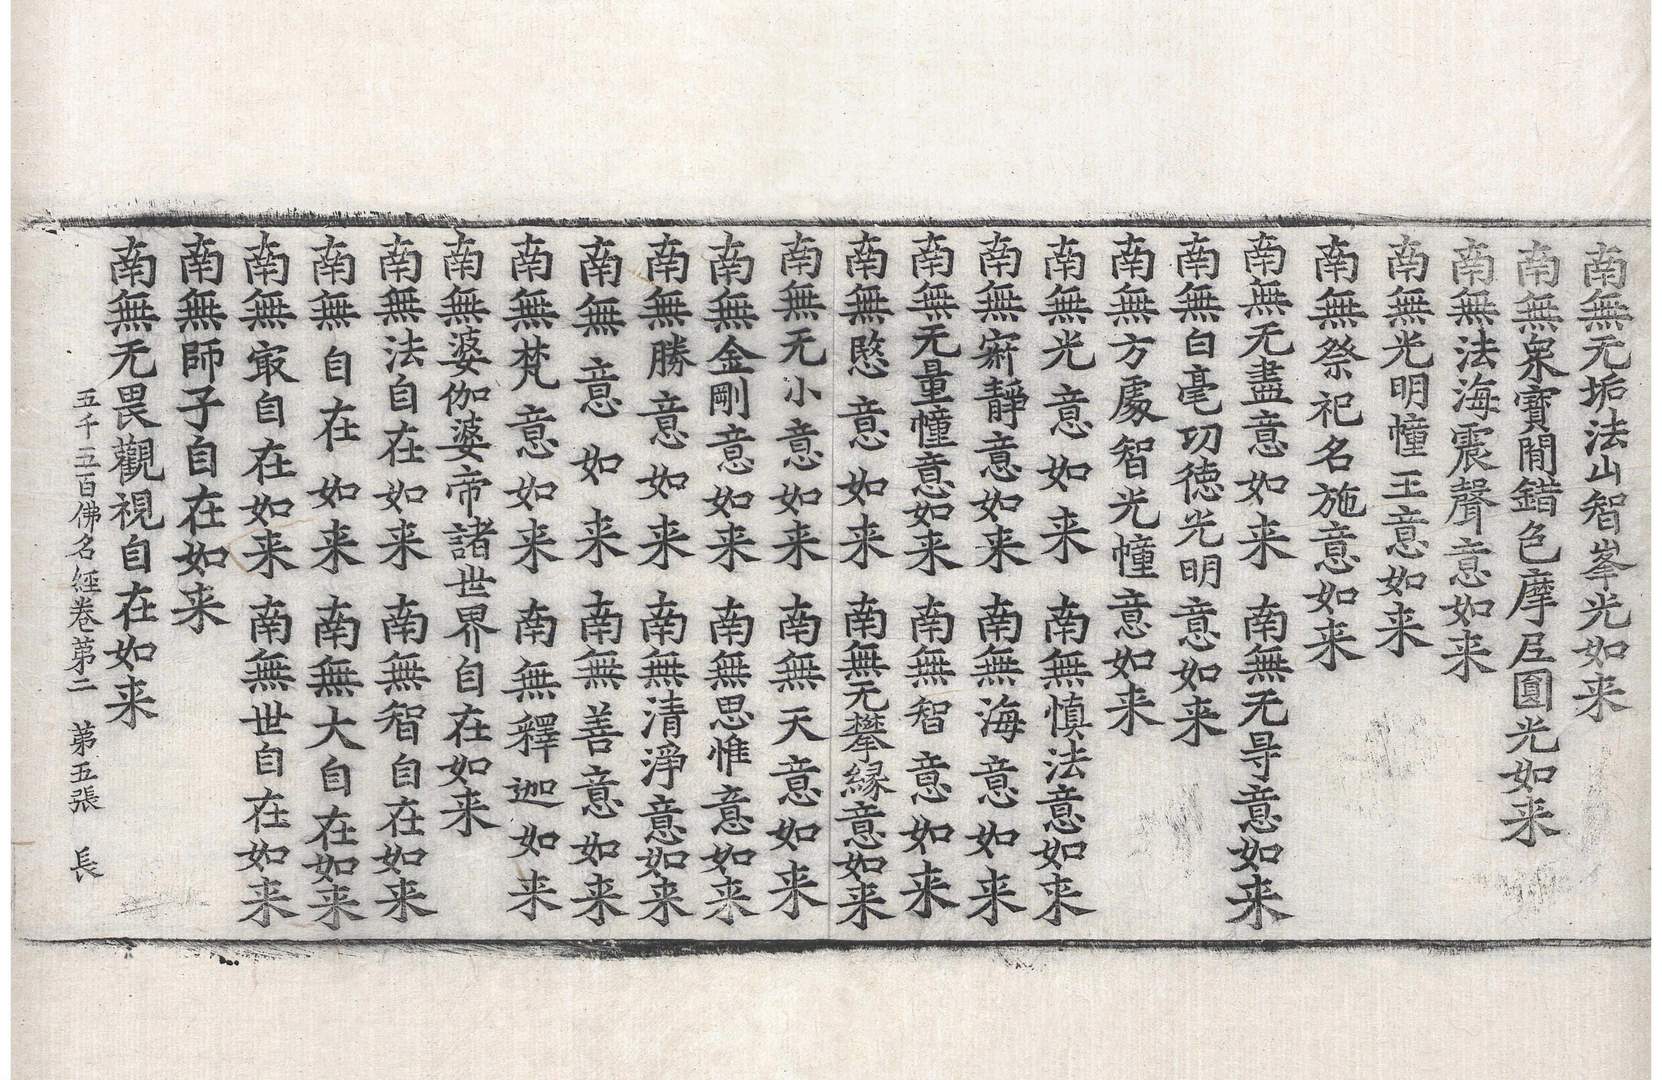 南無无垢法山智峯光如来
南無衆寶閒錯色摩尼圓光如来
南無法海震聲意如来
南無光明幢王意如来
南無祭祀名施意如来
南無无盡意如来 南無无㝵意如来
南無白毫功徳光明意如来
南無方處智光幢意如来
南無光意如来 南無慎法意如来
南無寂靜意如来 南無海意如来
南無无量幢意如来 南無智意如来
南無愍意如来 南無无攀緣意如来
南無无小意如来 南無天意如来
南無金剛意如来 南無思惟意如来
南無勝意如来 南無清淨意如来
南無意如来 南無善意如来
南無梵意如来 南無釋迦如来
南無婆伽婆帝諸世界自在如来
南無法自在如来 南無智自在如来
南無自在如来 南無大自在如来
南無㝡自在如来 南無世自在如来
南無師子自在如来
南無无畏觀視自在如来
五千五百佛名經卷第二 第五張 長